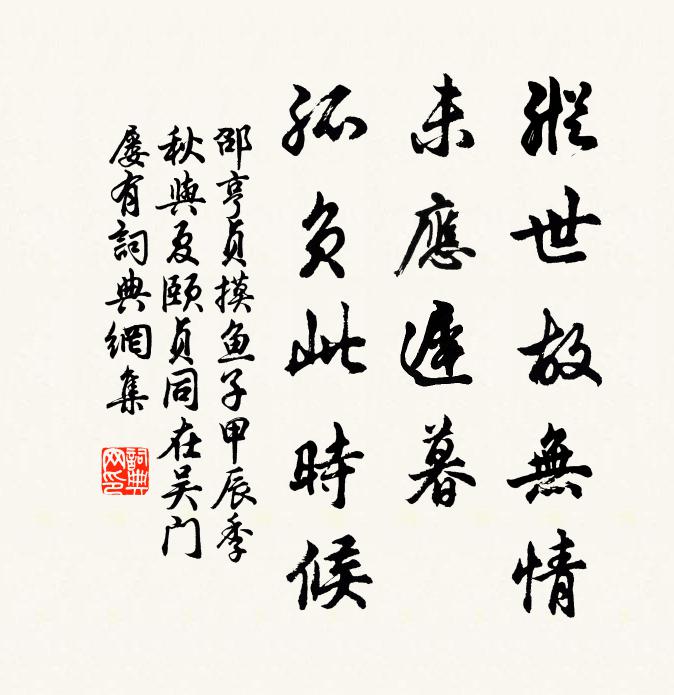 縱世故無情
未應遲暮
孤負此時候
邵亨貞摸魚子甲辰季
秋與夏頤貞同在吴门
屡有詞典網集
詞典网印